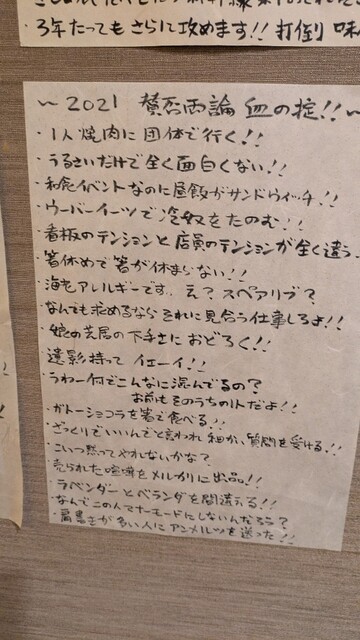 ・3年たっても さらに攻めます!! 打倒 味
〜 2021 賛否両論 血の掟!!〜
・1人焼肉に 団体で行く!!
・うるさいだけで全く面白くない!!
・和食イベントなのに昼飯がサンドウィッチ!!
・ウーバーイーツで 冷奴をたのむ!!
・看板のテンションと 店員のテンションが全く違う
・箸休めで 箸が休まらない!!
・海老アレルギーです.. え? スペアリブ?
・なんでも求めるなら それに見合う仕事しろよ!!
・娘の芝居の下手さに おどろく!!
・遺影持って イェーイ!!
・うわー何でこんなに混んでるの?
お前もそのうちの1人だよ!!
・ガトーショコラを箸で食べる!!
・ざっくりでいいんでと言われ 細かい質問を受ける!!
・こいつ黙ってやれないかな?
・売られた喧嘩をメルカリに出品!!
・ラベンダーとベランダを間違える!!
・なんでこの人マナーモードにしないんだろう?
・肩書きが多い人に アンメルツを送った!!